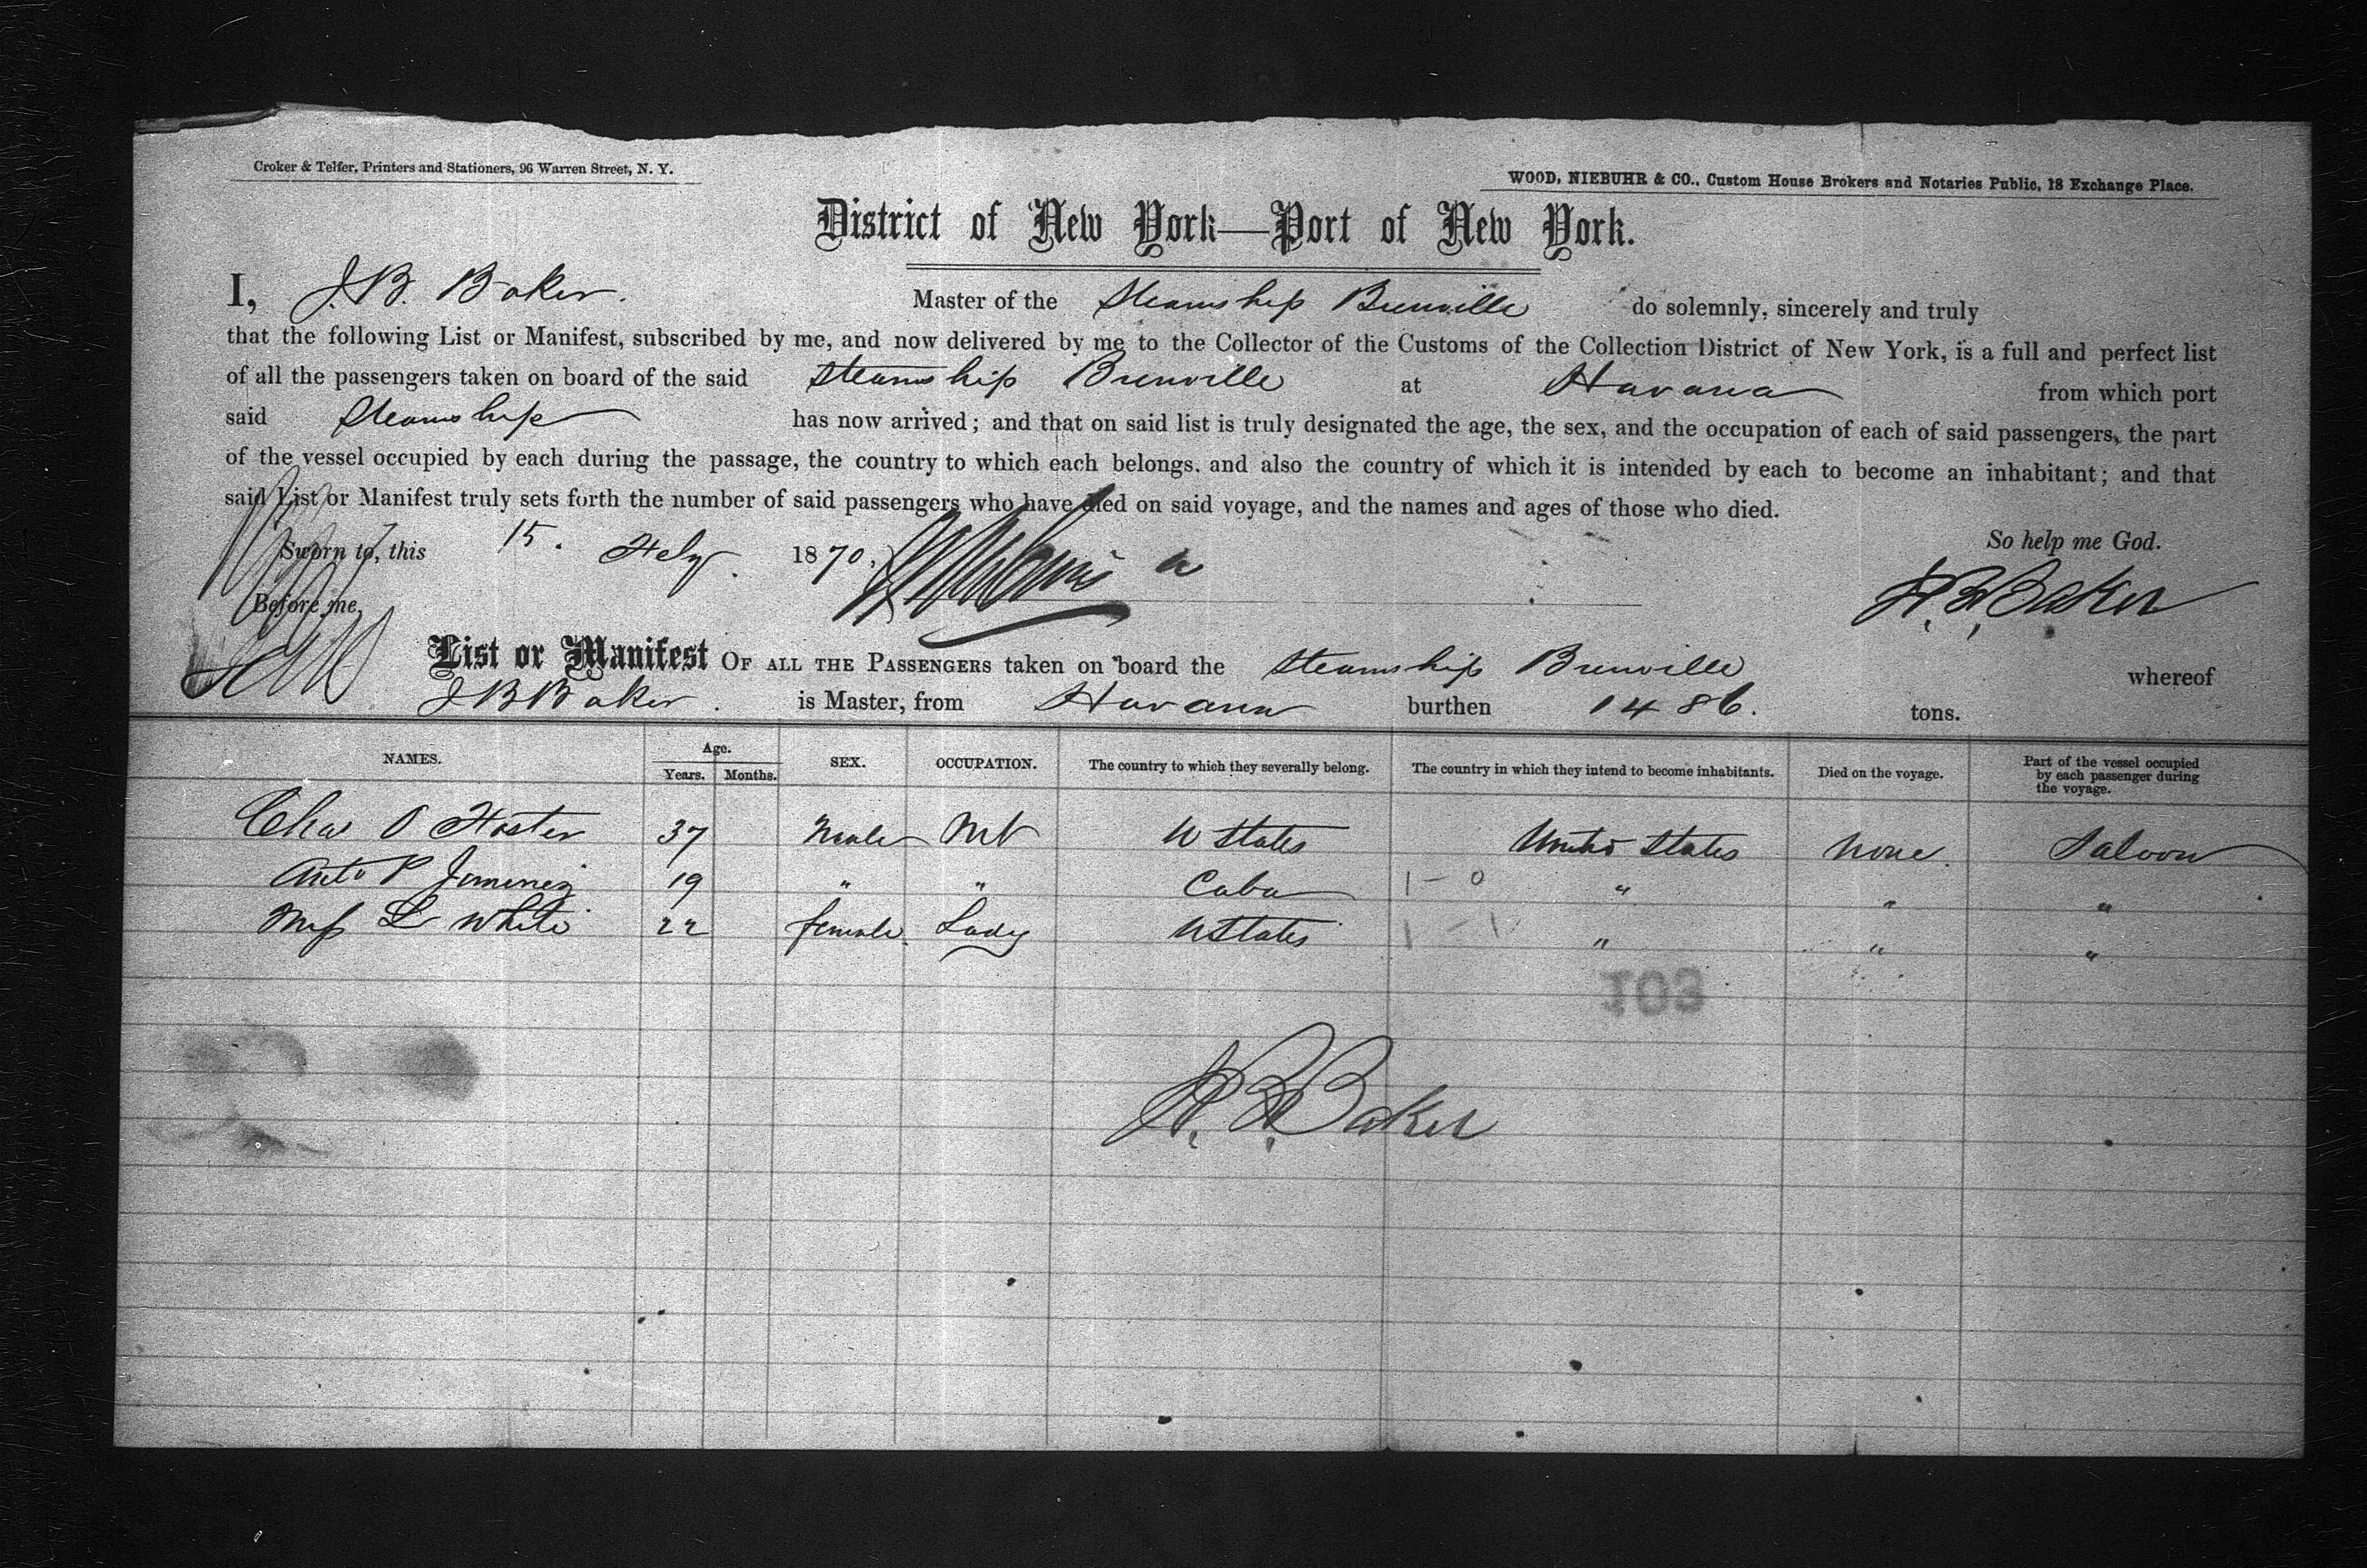 Croker & Telfer, Printers and Stationers, 96 Warren Street, N. Y.
WOOD, NIEBUHR & CO., Custom House Brokers and Notaries Public, 18 Exchange Place.
District of New York—Port of New York.
I, J. B. Baker. Master of the Steamship Bienville do solemnly, sincerely and truly
that the following List or Manifest, subscribed by me, and now delivered by me to the Collector of the Customs of the Collection District of New York, is a full and perfect list
of all the passengers taken on board of the said Steamship Bienville at Havana from which port
said Steamship has now arrived; and that on said list is truly designated the age, the sex, and the occupation of each of said passengers, the part
of the vessel occupied by each during the passage, the country to which each belongs. and also the country of which it is intended by each to become an inhabitant; and that
said List or Manifest truly sets forth the number of said passengers who have died on said voyage, and the names and ages of those who died.
Sworn to, this 15. Feby. 1870, So help me God.
Before me, J. B. Baker
List or Manifest OF ALL THE PASSENGERS taken on board the Steamship Bienville whereof
J B Baker. is Master, from Havana burthen 1486. tons.
NAMES. Age. Years. Months. SEX. OCCUPATION. The country to which they severally belong. The country in which they intend to become inhabitants. Died on the voyage. Part of the vessel occupied by each passenger during the voyage.
Chas O Foster 37 Male Mt U States United States None. Saloon
Anto P Jimenez 19 " " Cuba 1-0 " " "
Miss L White 22 female. Lady U States 1-1 " " "
103
J. B. Baker